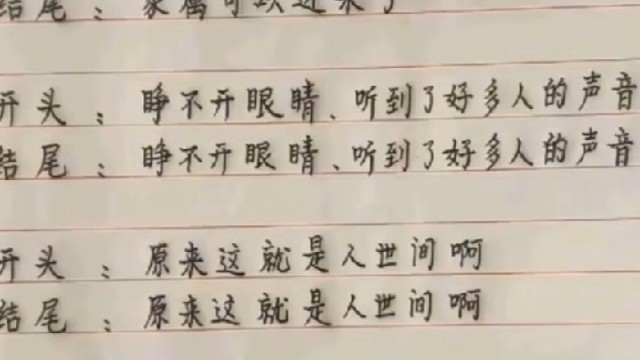 结尾：家属可以进来了
开头：睁不开眼睛、听到了好多人的声音
结尾：睁不开眼睛、听到了好多人的声音
开头：原来这就是人世间啊
结尾：原来这就是人世间啊